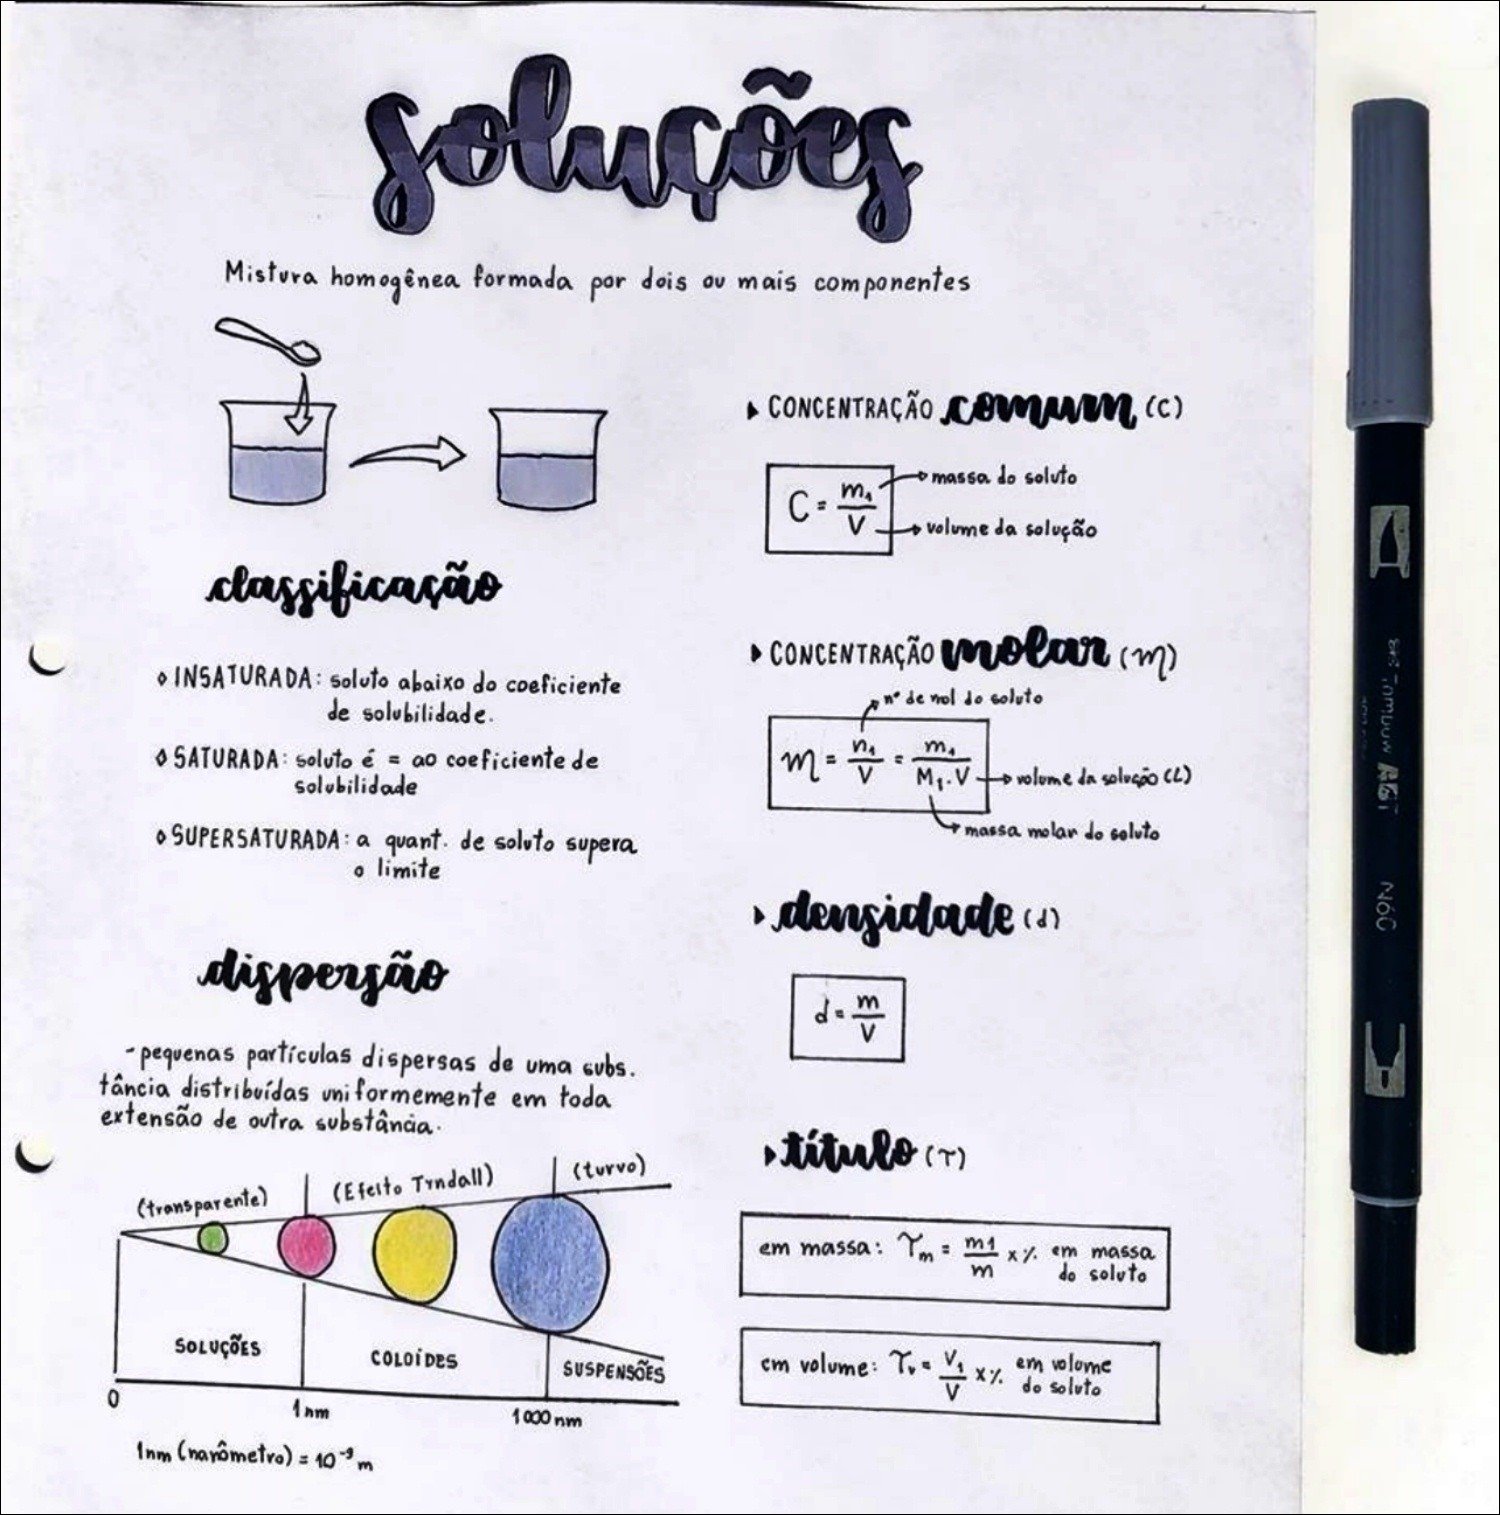 soluções
Mistura homogênea formada por dois ou mais componentes
classificação
INSATURADA: soluto abaixo do coeficiente
de solubilidade.
SATURADA: soluto é = ao coeficiente de
solubilidade
SUPERSATURADA: a quant. de soluto supera
o limite
dispersão
- pequenas partículas dispersas de uma subs.
tância distribuídas uniformemente em toda
extensão de outra substância.
(transparente)
(Efeito Tyndall)
(turvo)
SOLUÇÕES
COLOIDES
SUSPENSÕES
0
1nm
1000nm
1nm (nanômetro) = 10⁻⁹ m
CONCENTRAÇÃO comum (C)
C = m₁/V
massa do soluto
volume da solução
CONCENTRAÇÃO molar (m)
nº de mol do soluto
m = n₁/V = m₁/M₁.V
volume da solução (L)
massa molar do soluto
densidade (d)
d = m/V
título (τ)
em massa: τm = m1/m x % em massa
do soluto
em volume: τv = V₁/V x % em volume
do soluto
N60